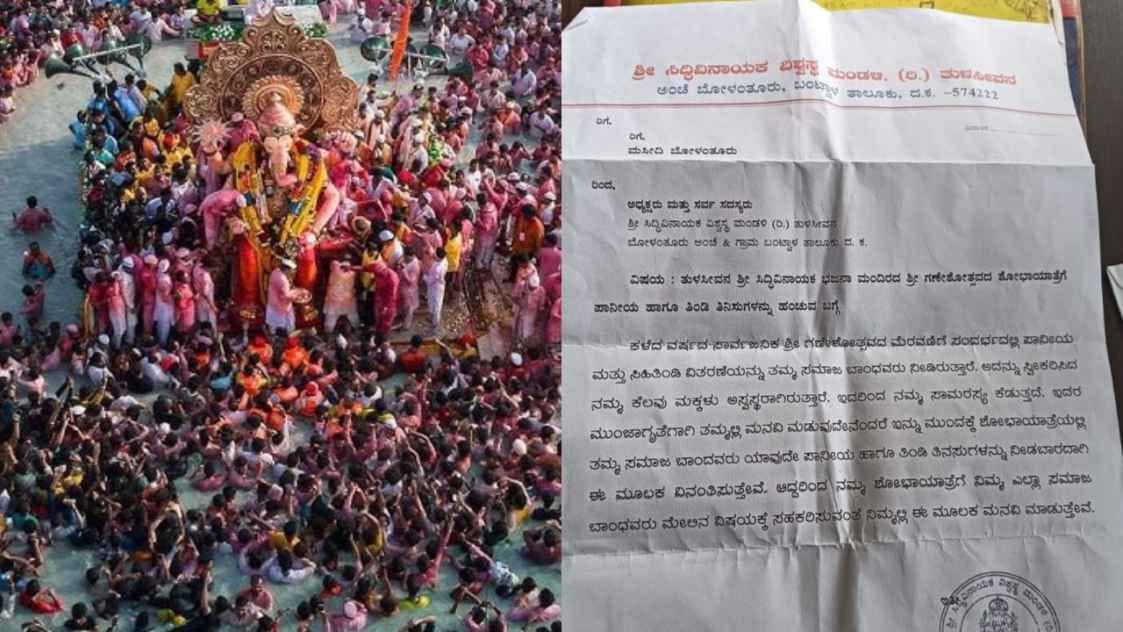 ಶ್ರೀ ಸಿದ್ಧಿವಿನಾಯಕ ವಿಶ್ವಸ್ಥ ಮಂಡಳಿ. (ರಿ.) ತುಳಸೀವನ
ಅಂಚೆ ಬೋಳಂತೂರು, ಬಂಟ್ವಾಳ ತಾಲೂಕು, ದ.ಕ. -574222
ರಿಗೆ,
ರಿಗೆ,
ಮಸೀದಿ ಬೋಳಂತೂರು
ರಿಂದ,
ಅಧ್ಯಕ್ಷರು ಮತ್ತು ಸರ್ವ ಸದಸ್ಯರು
ಶ್ರೀ ಸಿದ್ಧಿವಿನಾಯಕ ವಿಶ್ವಸ್ಥ ಮಂಡಳಿ (ರಿ.) ತುಳಸೀವನ
ಬೋಳಂತೂರು ಅಂಚೆ & ಗ್ರಾಮ ಬಂಟ್ವಾಳ ತಾಲೂಕು ದ. ಕ.
ವಿಷಯ : ತುಳಸೀವನ ಶ್ರೀ ಸಿದ್ಧಿವಿನಾಯಕ ಭಜನಾ ಮಂದಿರದ ಶ್ರೀ ಗಣೇಶೋತ್ಸವದ ಶೋಭಾಯಾತ್ರೆಗೆ
ಪಾನೀಯ ಹಾಗೂ ತಿಂಡಿ ತಿನಿಸುಗಳನ್ನು ಹಂಚುವ ಬಗ್ಗೆ
ಕಳೆದ ವರ್ಷದ ಸಾರ್ವಜನಿಕ ಶ್ರೀ ಗಣೇಶೋತ್ಸವದ ಮೆರವಣಿಗೆ ಸಂದರ್ಭದಲ್ಲಿ ಪಾನೀಯ
ಮತ್ತು ಸಿಹಿತಿಂಡಿ ವಿತರಣೆಯನ್ನು ತಮ್ಮ ಸಮಾಜ ಬಾಂಧವರು ನೀಡಿರುತ್ತಾರೆ. ಅದನ್ನು ಸ್ವೀಕರಿಸಿದ
ನಮ್ಮ ಕೆಲವು ಮಕ್ಕಳು ಅಸ್ವಸ್ಥರಾಗಿರುತ್ತಾರೆ. ಇದರಿಂದ ನಮ್ಮ ಸಾಮರಸ್ಯ ಕೆಡುತ್ತದೆ. ಇದರ
ಮುಂಜಾಗೃತೆಗಾಗಿ ತಮ್ಮಲ್ಲಿ ಮನವಿ ಮಡುವುದೇನೆಂದರೆ ಇನ್ನು ಮುಂದಕ್ಕೆ ಶೋಭಾಯಾತ್ರೆಯಲ್ಲಿ
ತಮ್ಮ ಸಮಾಜ ಬಾಂದವರು ಯಾವುದೇ ಪಾನೀಯ ಹಾಗೂ ತಿಂಡಿ ತಿನಸುಗಳನ್ನು ನೀಡಬಾರದಾಗಿ
ಈ ಮೂಲಕ ವಿನಂತಿಸುತ್ತೇವೆ. ಆದ್ದರಿಂದ ನಮ್ಮ ಶೋಭಾಯಾತ್ರೆಗೆ ನಿಮ್ಮ ಎಲ್ಲಾ ಸಮಾಜ
ಬಾಂಧವರು ಮೇಲಿನ ವಿಷಯಕ್ಕೆ ಸಹಕರಿಸುವಂತೆ ನಿಮ್ಮಲ್ಲಿ ಈ ಮೂಲಕ ಮನವಿ ಮಾಡುತ್ತೇವೆ.
ಶ್ರೀ ಸಿದ್ಧಿವಿನಾಯಕ ವಿಶ್ವಸ್ಥ ಮಂಡಳಿ